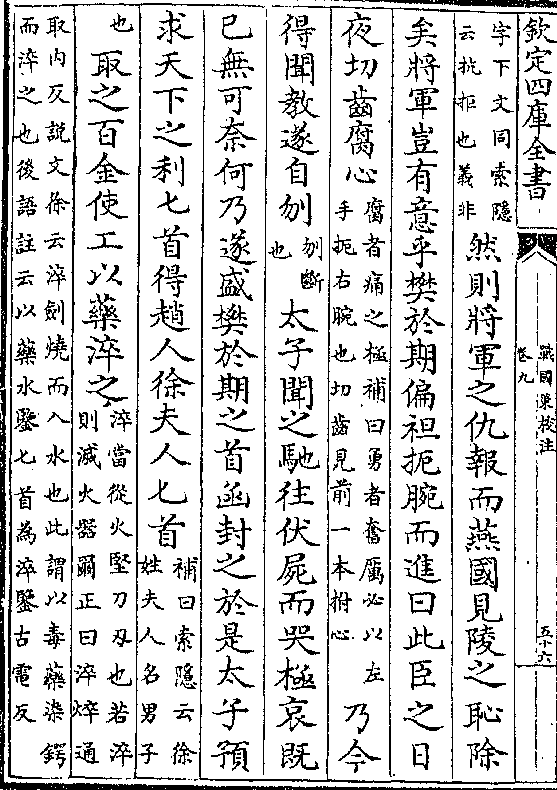 欽定四庫全書
戰國策校注
卷九
五十六
字下文同索隱
云抗拒也義非
然則將軍之仇報而燕國見陵之恥除
矣將軍豈有意乎樊於期偏袒扼腕而進曰此臣之日
夜切齒腐心
腐者痛之極補曰勇者奮厲必以左
手扼右腕也切齒見前一本拊心
乃今
得聞教遂自刎
刎斷
也
太子聞之馳往伏屍而哭極哀既
已無可奈何乃遂盛樊於期之首函封之於是太子預
求天下之利匕首得趙人徐夫人匕首
補曰索隱云徐
姓夫人名男子
也
取之百金使工以藥淬之
淬當從火堅刀刃也若淬
則滅火器爾正曰淬焠通
取内反説文徐云淬劍燒而入水也此謂以毒藥染鍔
而淬之也後語註云以藥水鋻匕首為淬鋻古電反